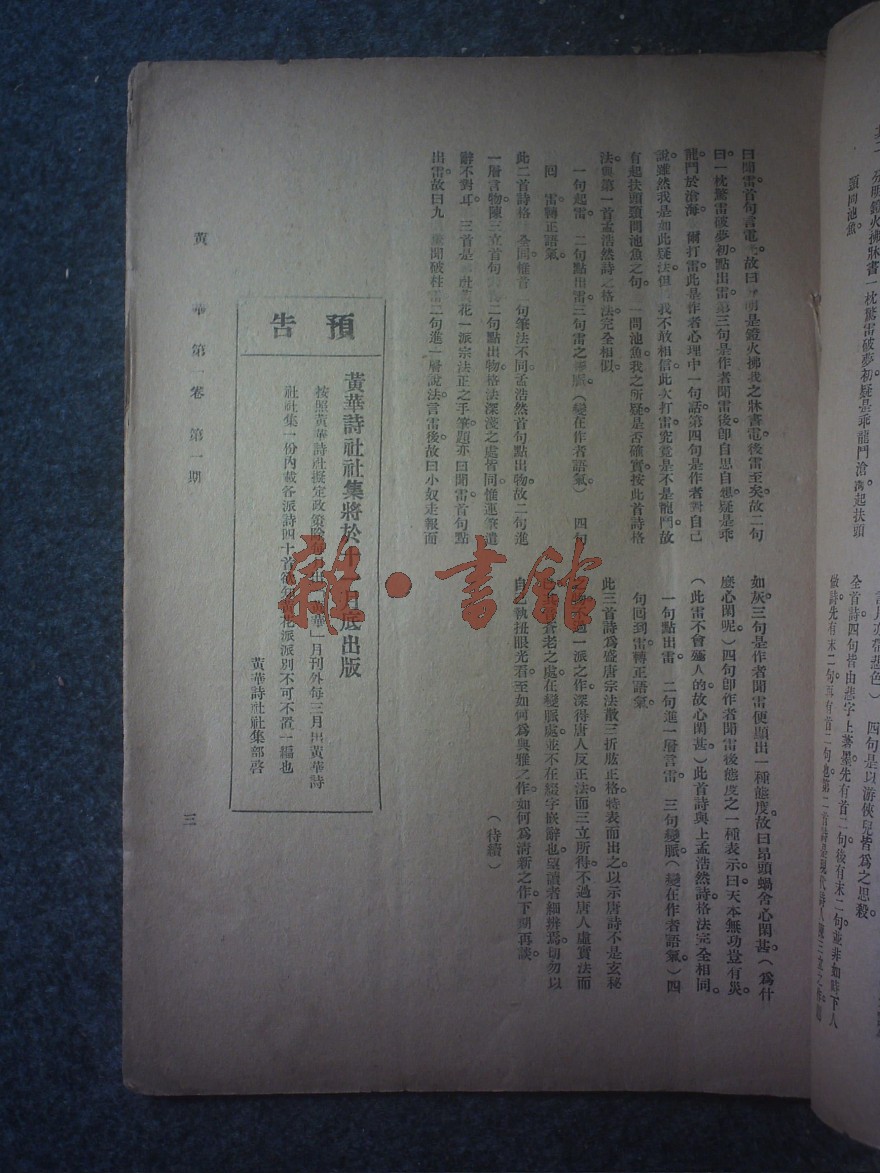 曰聞雷首句言電故曰分明是鐙火拂我之牀書電後雷至矣故二句
曰一枕驚雷破夢初點出雷第三句是作者聞雷後卽自思自想疑是乖
龍門於滄海 爾打雷此是作者心理中一句話第四句是作者對自己
說雖然我是如此疑法但 我不敢相信此次打雷究竟是不是龍鬥故
有起扶頭頸問池魚之句 一問池魚我之所疑是否確實按此首詩格
法與第一首孟浩然詩之格法完全相似
一句起雷 二句點出雷三句雷之 脈(變在作者語氣) 四句
囘 雷轉正語氣
此二首詩格 全同惟首 句筆法不同孟浩然首句點出物故二句進
一層言物陳三立首句 二句點出物格法深淺之處皆同惟運筆遣
辭不對耳 三首是 社黃花一派宗法正之手筆題亦曰聞雷首句點
出雷故曰九 聞破柱雷二句進一層說法言雷後故曰小奴走報面
如灰三句是作者聞雷便顯出一種態度故曰昂頭蝸舍心閑甚(爲什
麼心閑呢)四句卽作者聞雷後態度之一種表示曰天本無功豈有災
(此雷不會 人的故心閑甚)此首詩與上孟浩然詩格法完全相同
一句點出雷 二句進一層言雷 三句變脈(變在作者語氣)四
句囘到雷轉正語氣
此三首詩爲盛唐宗法散三折 正格特表而出之以示唐詩不是玄秘
之物不過一派之作深得唐人反正法而三立所得不過唐人虛實法而
蒼老之處在變脈處並不在綴字嵌辭也望讀者細辨焉切勿以
自己執拗眼光看至如何爲典雅之作如何爲清新之作下期再談
(待續)
預告
黃華詩社社集將於十 月底出版
按照黃華詩社擬定政策除 月出 華」月刊外每三月出黃華詩
社社集一份內載各派詩四十首欲知黃花派派別不可不置一編也
黃華詩社社集部啓
黃華第一卷第一期
三
雜·書館
其二 分明鐙火拂牀書一枕驚雷破夢初疑是乖龍門滄 起扶頭
頸問池魚
四句是以游俠兒皆爲之思殺
全首詩四句皆由悲字上著墨先有首二句後有末二句並非如時下人
做詩先有末二句再有首二句也第二首詩是現代詩人陳三立之作